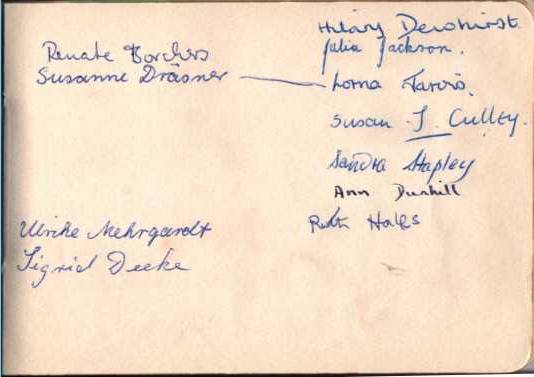 Renate Borchers
Susanne Dräsner
Ulrike Mehrgardt
Sigrid Deeke
Hilary Dewhirst
Julia Jackson.
Lorna Jarvis.
Susan J. Culley.
Sandra Stapley
Ann Dunhill
Ruth Hales